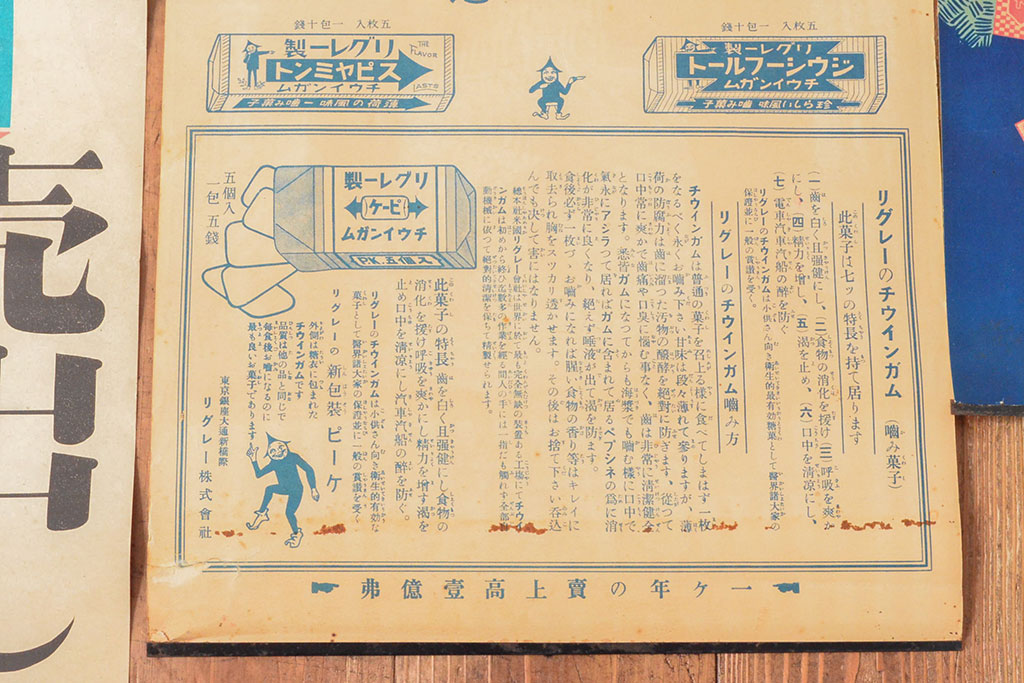 五枚入 一包十錢
リグレー製
ジウシーフールート
チウインガム
珍らしい風味 嚙み菓子
五枚入 一包十錢
リグレー製
スピヤミント
チウインガム
薄荷の風味－嚙み菓子
THE FLAVOR
LASTS
リグレーのチウインガム (嚙み菓子)
此菓子は七ッの特長を持て居ります
(一)齒を白く且强健にし、(二)食物の消化を援け(三)呼吸を爽か
にし、(四)精力を增し、(五)渴を止め、(六)口中を淸凉にし、
(七)電車汽車汽船の醉を防ぐ
リグレーのチウインガムは小供さん向き衛生的最有効糖菓として醫界諸大家の
保證並に一般の賞讃を受く。
リグレーのチウインガム嚙み方
チウインガムは普通の菓子を召上る樣に食べてしまはず一枚
をなるべく永くお嚙み下さい甘味は段々薄れて參りますが、薄
荷の防腐力は齒に溜つた汚物の醱酵を絶對に防ぎます、從つて
口中常に爽かで齒痛や口臭に惱む事なく、齒は非常に淸潔健全
となります。惡習ガムになつてからも海漿でも嚙む樣に口中で
氣永にアシラつて居ればガムに含まれて居るペプシネの爲に消
化が非常に良くなり、絶えず唾液が出て渴を防ぎます。
食後必ず一枚づゝお嚙みになれば腥い食物の香り等はキレイに
取去られ胸をスツカリ透かせます。その後はお捨て下さい呑込
んでも決して害にはなりません。
總本社米國リグレー會社は世界に於て最も完全無缺の裝置ある工場にてチウイ
ンガムは初めから終ひ迄數多の作業を經る間人の手には一指だも觸れず全部自
動機械に依つて絕對的淸潔を保ちて精製せられます。
リグレー製
ピーケー
チウインガム
PK.五個入
五個入
一包 五錢
此菓子の特長 齒を白く且强健にし食物の
消化を援け呼吸を爽かにし精力を增す渴を
止め口中を淸凉にし汽車汽船の醉を防ぐ。
リグレーのチウインガムは小供さん向き衛生的有効な
菓子として醫界諸大家の保證並に一般の賞讃を受く
リグレーの新包裝 ピーケ
外側は糖衣に包まれた
チウインガムです
品質は他の品と同じで
每食後お嚙になるのに
最も良いお菓子であります
東京銀座大通新橋際
リグレー株式會社
一ヶ年の賣上高壹億弗